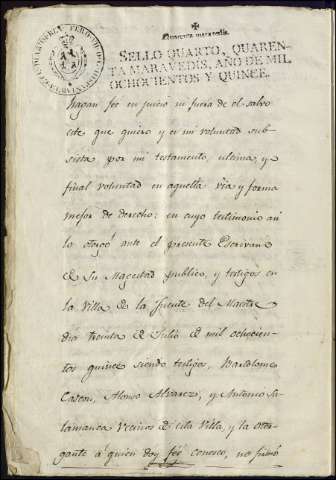 Quarenta maravedis.
SELLO QUARTO, QUAREN-
TA MARAVEDIS, AÑO DE MIL
OCHOCIENTOS Y QUINCE.
hagan feé en juicio ni fuera de él salvo
este que quiero y es mi voluntad sub-
sista por mi testamento, ultima, y
final voluntad en aquella via y forma
mejor de derecho: en cuyo testimonio asi
lo otorgó ante el presente Escrivano
de Su Magestad publico, y testigos en
la Villa de la fuente del Maestre
dia treinta de Julio de mil ochocien-
tos quince siendo testigos, Bartolome
Cascon, Alonso Alvarez, y Antonio Sa-
lamanca Vecinos de esta Villa, y la otor-
gante á quien doy feé conosco, no firmó